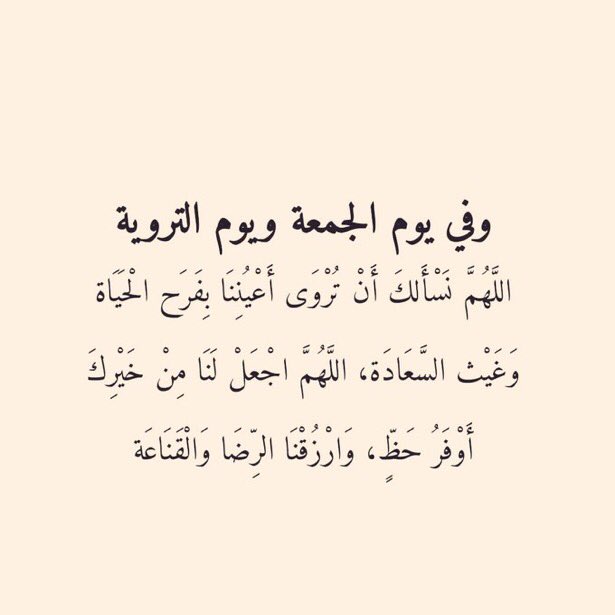 وفي يوم الجمعة ويوم التروية
اللَّهُمَّ نَسْأَلكَ أَنْ تُرْوَى أَعْيُنِنَا بِفَرَح الْحَيَاة
وَغَيْث السَّعَادَة، اللَّهُمَّ اجْعَلْ لَنَا مِنْ خَيْرِكَ
أَوْفَرُ حَظٍّ، وَارْزُقْنَا الرِّضَا وَالْقَنَاعَة